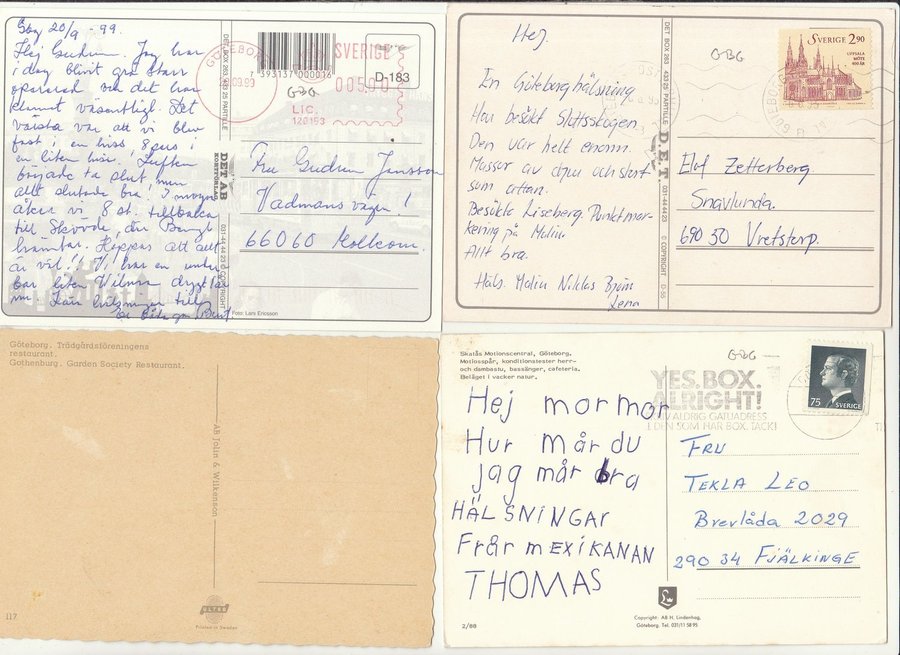 Gbg 20/9 -99.
Hej Gudrun. Jag har
i dag blivit grå starr
opererad och det har
klarnat väsentligt. Det
värsta var att vi blev
fast i en hiss 8 pers i
en liten hiss! Luften
började ta slut men
allt slutade bra! I morgon
åker vi 8 st. tillbaka
till Skövde, där Bengt
hämtar. Hoppas att allt
är väl!! Vi har en under
bar liten Wilma
nu. hälsningar
DET BOX 263, 433 25 PARTILLE
DET AB
KORTFÖRLAG
031-44 44 23 © COPYRIGHT
Foto: Lars Ericsson
GÖTEBORG
20.9.99
7393137000036
GBG
SVERIGE
00500
LIC.
120193
D-183
Fru Gudrun Jansson
Vadmans vägen 1
66060 Molkom.
Hej.
En Göteborghälsning.
Har besökt Slottsskogen.
Den var helt enorm.
Massor av djur och stort
som attan.
Besökte Liseberg. Punktmar-
kering på Malin.
Allt bra.
Häls. Malin Niklas Björn
Lena
DET BOX 263, 433 25 PARTILLE
D.E.T.
031-444423
© COPYRIGHT
D-55
GBG
SVERIGE 2.90
UPPSALA
MÖTE
400 ÅR
Elof Zetterberg
Snavlunda.
690 30 Vretstorp.
Göteborg. Trädgårdsföreningens
restaurant.
Gothenburg. Garden Society Restaurant.
AB Jolin & Wilkenson
117
ULTRA
Printed in Sweden
Skatås Motionscentral, Göteborg.
Motionsspår, konditionstester herr-
och dambastu, bassänger, cafeteria.
Beläget i vacker natur.
GBG
YES. BOX.
ALRIGHT!
ALDRIG GATUADRESS
DEN SOM HAR BOX. TACK!
75
SVERIGE
Hej mormor
Hur mår du
jag mår bra
HÄLSNINGAR
Från MEXIKANAN
THOMAS
FRU
TEKLA LEO
Brevlåda 2029
290 34 FJÄLKINGE
2/88
Copyright: AB H. Lindenhag,
Göteborg. Tel. 031/11 58 95